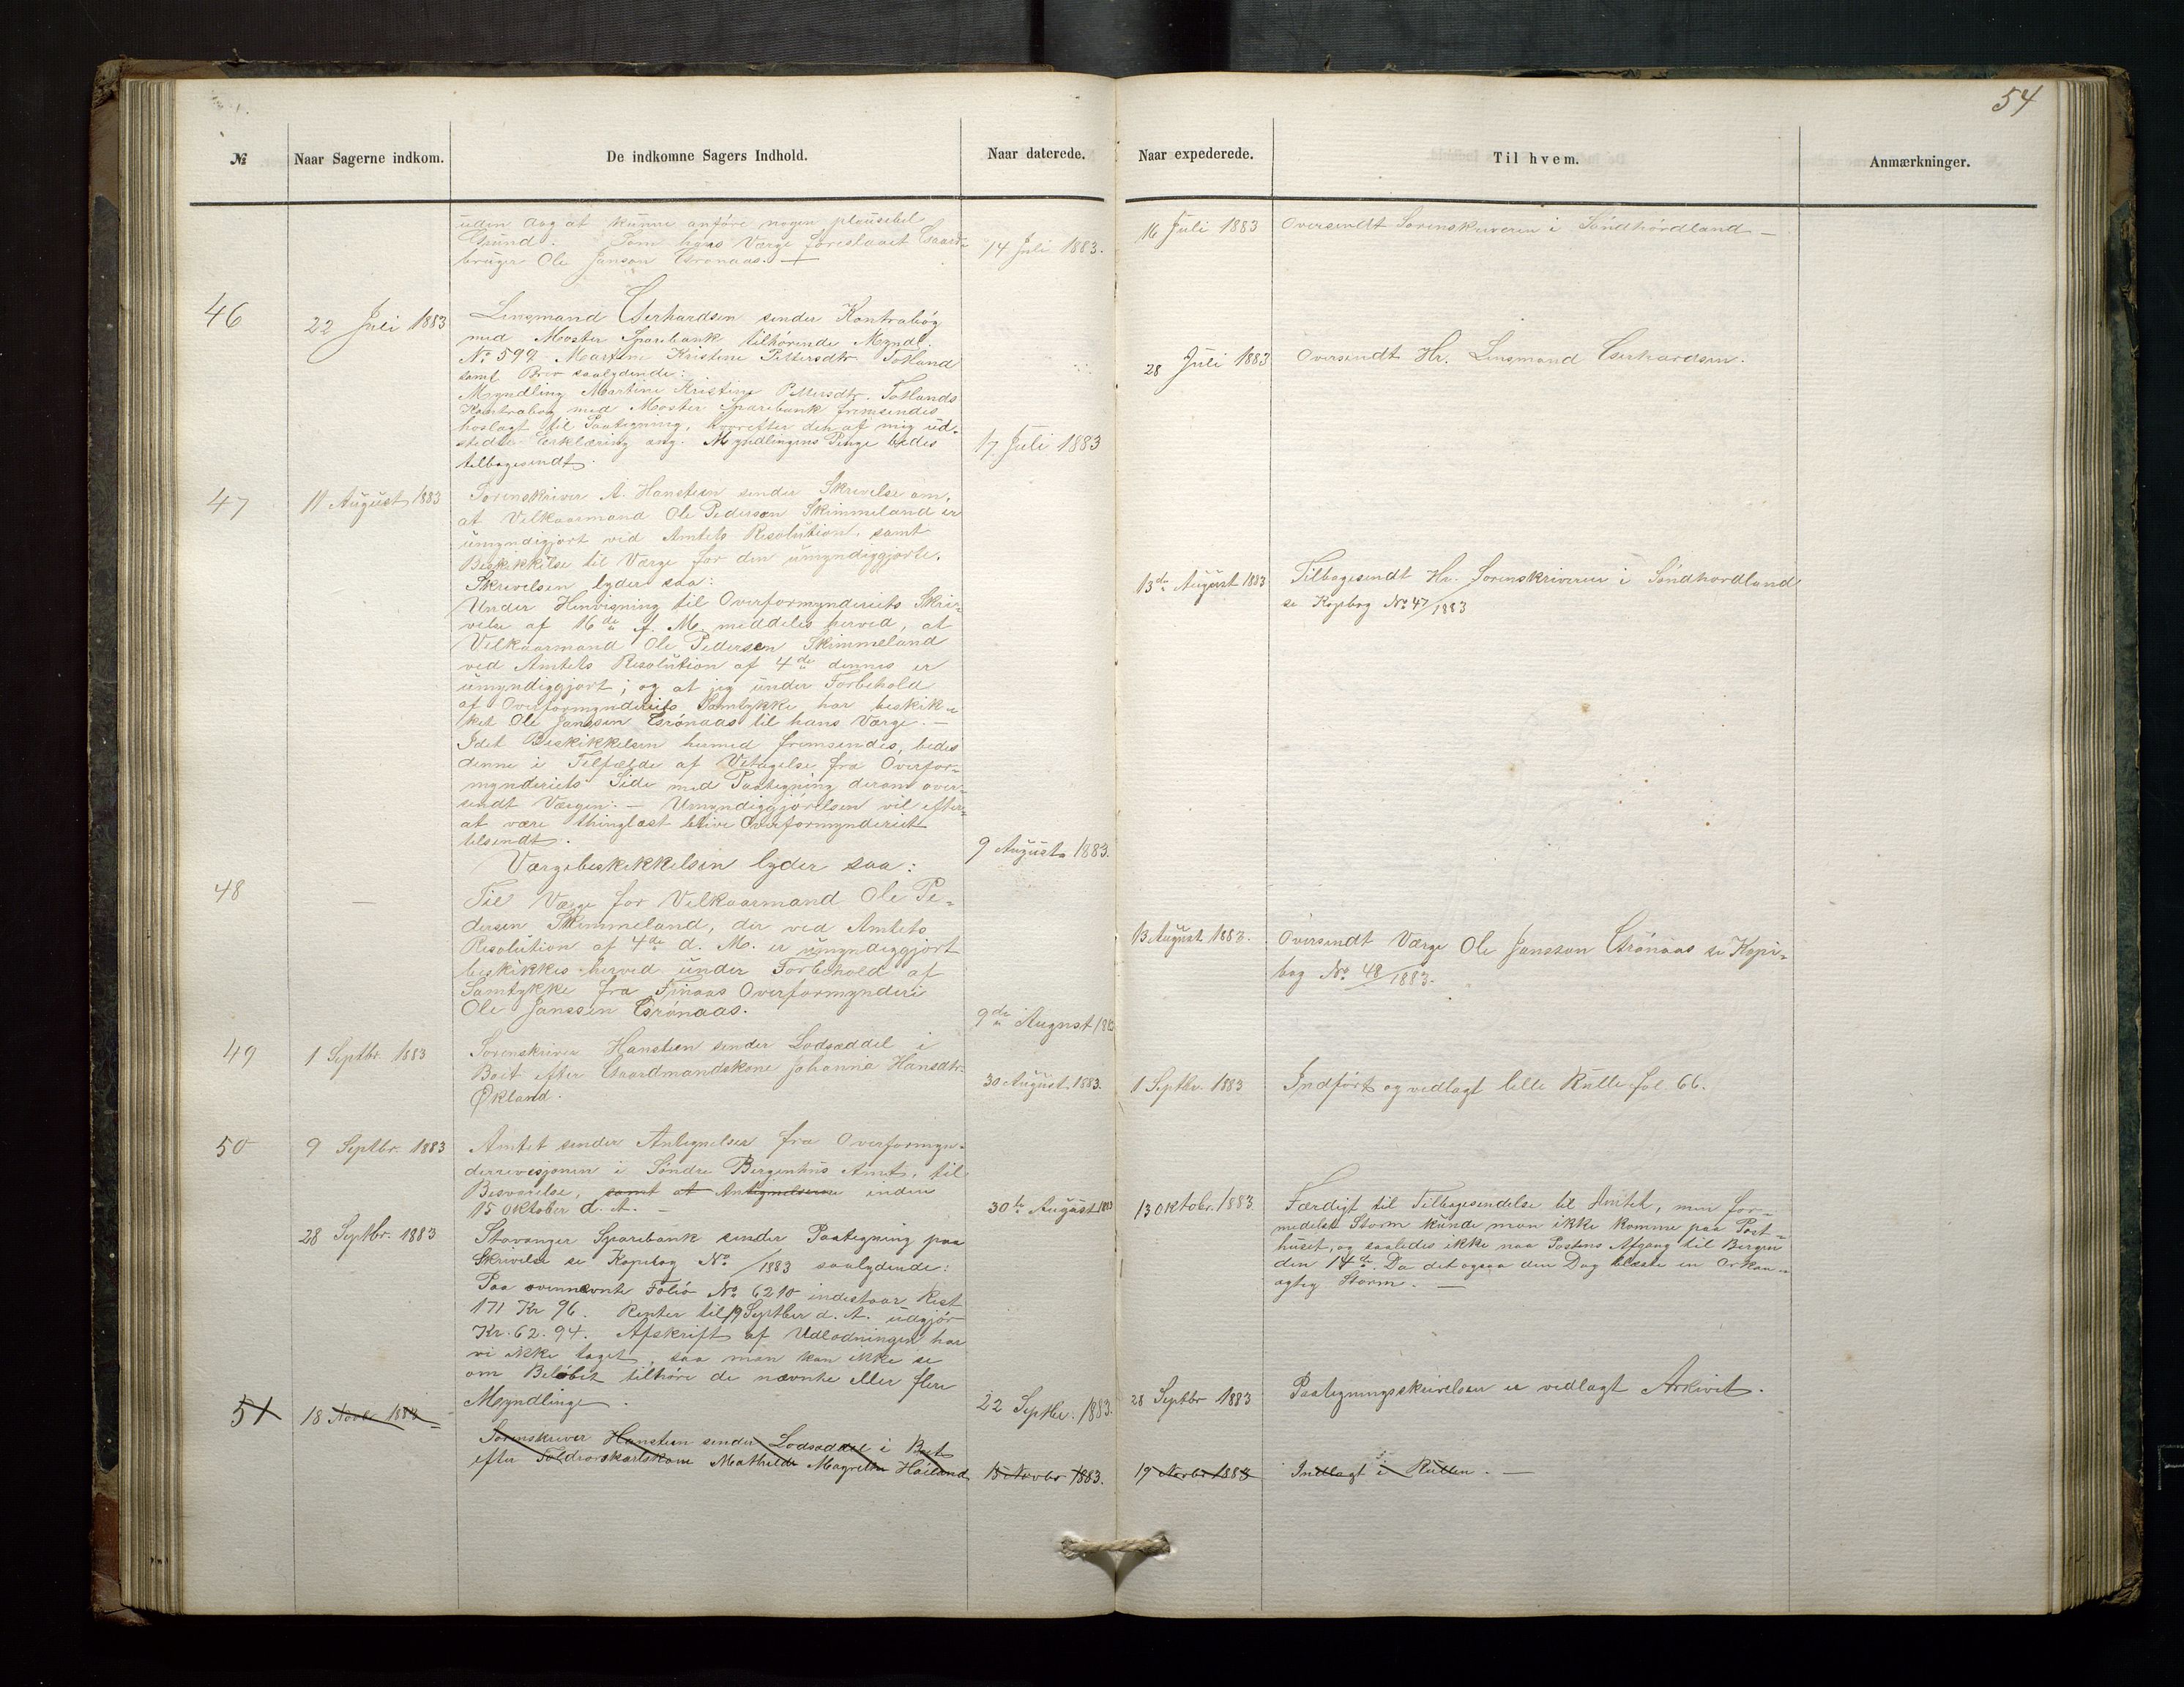 54
№
Naar Sagerne indkom.
De indkomne Sagers Indhold.
Naar daterede.
Naar expederede.
Til hvem.
Anmærkninger.
uden dog at kunne anføre nogen plausibel
Grund. Som hans Værge foreslaaes Gaard-
bruger Ole Janson Grønaas. —
14 Juli 1883.
16 Juli 1883
Oversendt Sorenskriveren i Søndhordland —
46
22 Juli 1883
Lensmand Gerhardsen sender Kontrabog
med Moster Sparebank tilhørende Myndl.
No 599 Martine Kristine Pettersdtr. Totland
samt Brev saalydende:
Myndling Martine Kristine Pettersdtr. Totlands
Kontrabog med Moster Sparebank fremsendes
hoslagt til Paategning, hvorefter den af mig ud-
stedte Erklæring ang. Myndlingens Penge bedes
tilbagesendt.
17 Juli 1883
28 Juli 1883
Oversendt Hr. Lensmand Gerhardsen.
47
11 August 1883
Sorenskriver A. Hansteen sender Skrivelse om,
at Velkaarmand Ole Pederson Skimmeland er
umyndigjort ved Amtets Resolution, samt
Beskikkelse til Værge for den umyndiggjorte.
Skrivelsen lyder saa:
Under Henvisning til Overformynderiets Skri-
velse af 16de f. M. meddeles herved, at
Velkaarmand Ole Pedersen Skimmeland
ved Amtets Resolution af 4de dennes er
umyndiggjort; og at jeg under Forbehold
af Overformynderiets Samtykke har beskik-
ket Ole Janssen Grønaas til hans Værge. —
Idet Beskikkelsen hermed fremsendes, bedes
denne i Tilfælde af Vedtagelse fra Overfor-
mynderiets Side med Paategning derom over-
sendt Værgen. — Umyndiggjørelsen vil efter-
at være thinglæst blive Overformynderiet
tilsendt.
9 August 1883.
13de August 1883
Tilbagesendt Hr. Sorenskriveren i Søndhordland
se Kopibog No 47/1883
Værgebeskikkelsen lyder saa:
48
—
Til Værge for Velkaarmand Ole Pe-
dersen Skimmeland, der ved Amtets
Resolution af 4de d. M. er umyndiggjort
beskikkes herved under Forbehold af
Samtykke fra Finaas Overformynderi
Ole Janssen Grønaas.
9de August 1883
13 August 1883.
Oversendt Værge Ole Jansson Grønaas se Kopi-
bog No 48/1883.
49
1 Septbr. 1883
Sorenskriver Hansteen sender Lodseddel i
Boet efter Gaardmandskone Johanna Hansdtr.
Økland.
30 August 1883.
1 Septbr. 1883
Indført og vedlagt lille Rulle fol. 66.
50
9 Septbr. 1883
Amtet sender Antegnelser fra Overformyn-
derrevisjonen i Søndre Bergenhus Amt, til
Besvarelse, samt at Antegnelserne inden
15 Oktober d. A. —
30te August 1883
13 Oktobr. 1883.
Færdigt til Tilbagesendelse til Amtet, men for-
medelst Storm kunde man ikke komme paa Post-
huset, og saaledes ikke naa Postens Afgang til Bergen
den 14de. Da det ogsaa den Dag blæste en Orkan-
agtig Storm. —
28 Septbr. 1883
Stavanger Sparebank sender Paategning paa
Skrivelse se Kopibog No /1883 saalydende:
Paa ovennævnte Folio No 6210 indestaar Rest
171 Kr 96. Renter til 19 Septber d. A. udgjør
Kr. 62.94. Afskrift af Udlodningen har
vi ikke taget, saa man kan ikke se
om Beløbet tilhøre de nævnte eller flere
Myndlinge.
22 Septbr. 1883.
28 Septbr 1883
Paategningsskrivelsen er vedlagt Arkivet.
51
18 Novbr 1883
Sorenskriver Hansteen sender Lodseddel i Boet
efter Mathilde Magrethe Høiland
15 Novbr 1883.
19 Novbr 1883
Indlagt i Rullen. —